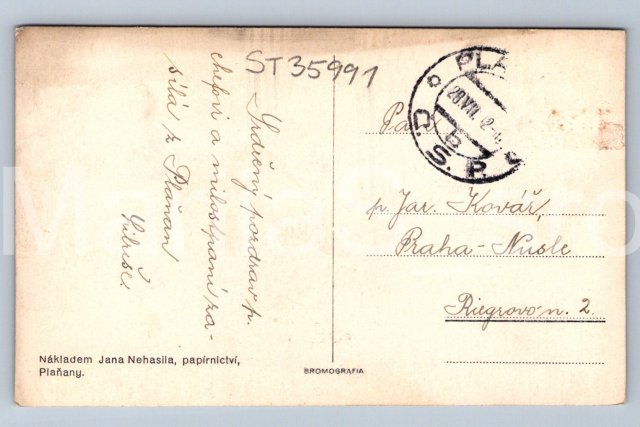 ST35991
Srdečný pozdrav p.
chefovi a milostpaní za-
sílá z Plaňan
Nákladem Jana Nehasila, papírnictví,
Plaňany.
BROMOGRAFIA
PLA
28 VII
b
Č.S.P.
Pan
p. Jar. Kovář,
Praha-Nusle
Riegrovo n. 2.